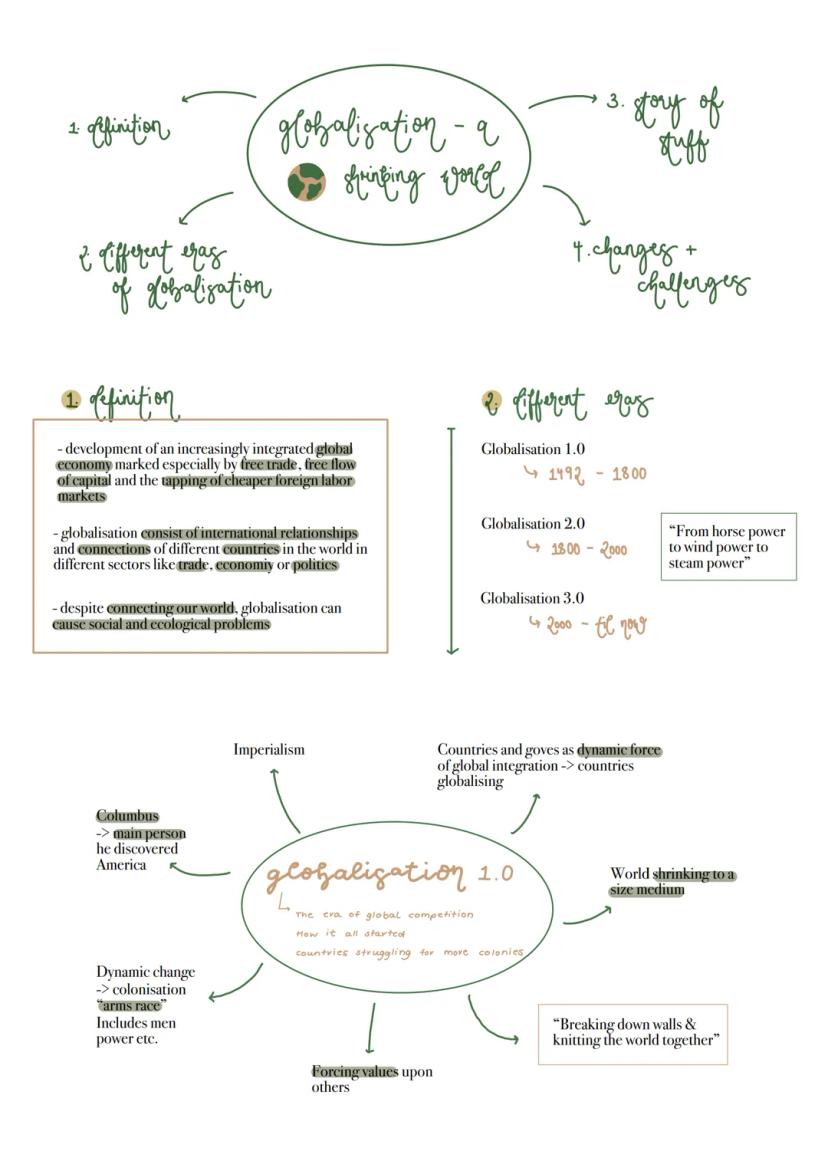 globalisation - a
shrinking world
1. definition
2. different eras
of globalisation
3. story of
stuff
4. changes +
challenges
1. definition
- development of an increasingly integrated global
economy marked especially by free trade, free flow
of capital and the tapping of cheaper foreign labor
markets
- globalisation consist of international relationships
and connections of different countries in the world in
different sectors like trade, economiy or politics
- despite connecting our world, globalisation can
cause social and ecological problems
2. different eras
Globalisation 1.0
↳ 1492 - 1800
Globalisation 2.0
↳ 1800 - 2000
Globalisation 3.0
↳ 2000 - til now
“From horse power
to wind power to
steam power”
globalisation 1.0
The era of global competition
How it all started
countries struggling for more colonies
Imperialism
Countries and goves as dynamic force
of global integration -> countries
globalising
Columbus
-> main person
he discovered
America
World shrinking to a
size medium
Dynamic change
-> colonisation
“arms race”
Includes men
power etc.
Forcing values upon
others
“Breaking down walls &
knitting the world together”